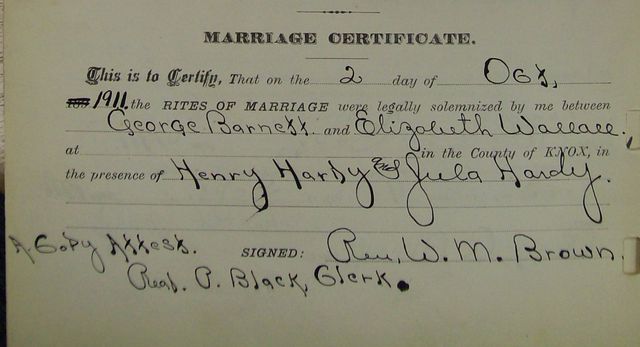 MARRIAGE CERTIFICATE.
This is to Certify, That on the 2 day of Oct,
1911. the RITES OF MARRIAGE were legally solemnized by me between
George Barnett. and Elizabeth Wallace.
at in the County of KNOX, in
the presence of Henry Hardy and Jula Hardy.
A Copy Attest. SIGNED: Rev. W. M. Brown.
P. Black, Clerk.